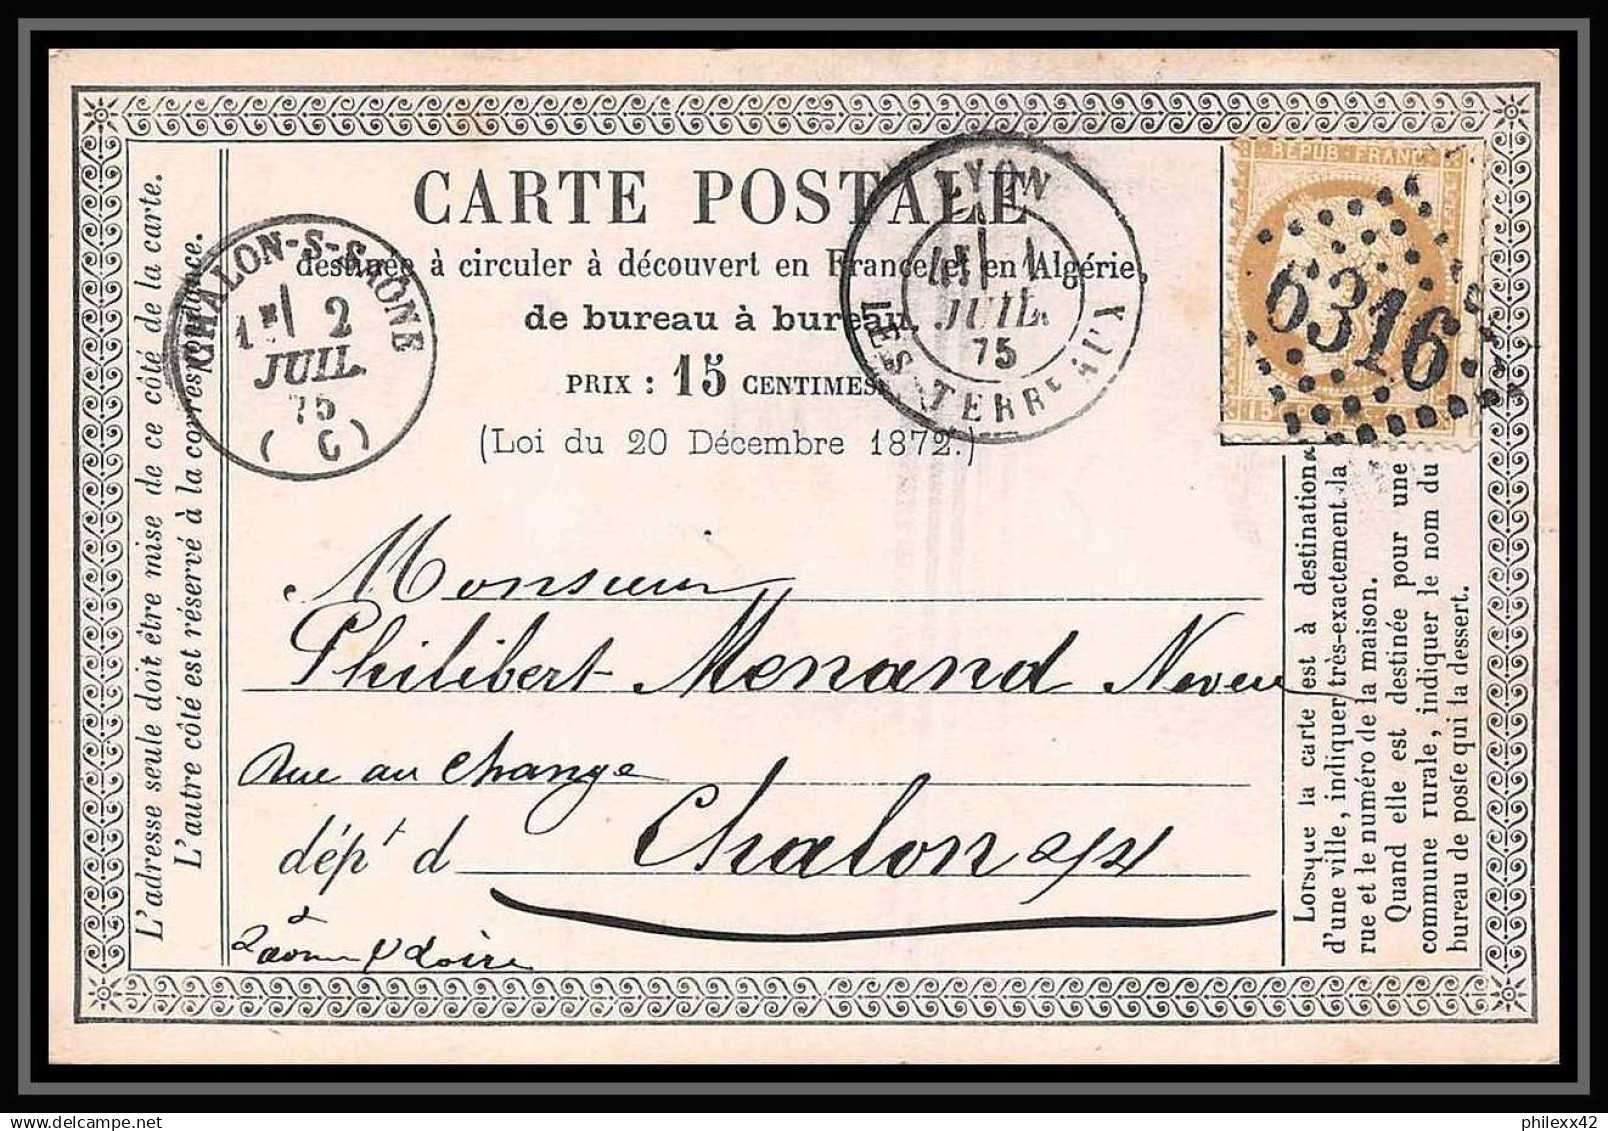 CARTE POSTALE
destinée à circuler à découvert en France et en Algérie,
de bureau à bureau.
PRIX : 15 CENTIMES.
(Loi du 20 Décembre 1872.)
CHALON-S-SAÔNE
1E 2
JUIL.
75
( C )
LYON
1
JUIL.
75
LES TERREAUX
REPUB · FRANC
15
6316
L'adresse seule doit être mise de ce côté de la carte.
L'autre côté est réservé à la correspondance.
Monsieur
Philibert Menand Neveu
Rue au Change
dépt d Chalon s/S
Saône & Loire
Lorsque la carte est à destination
d'une ville, indiquer très-exactement la
rue et le numéro de la maison.
Quand elle est destinée pour une
commune rurale, indiquer le nom du
bureau de poste qui la dessert.
philexx42